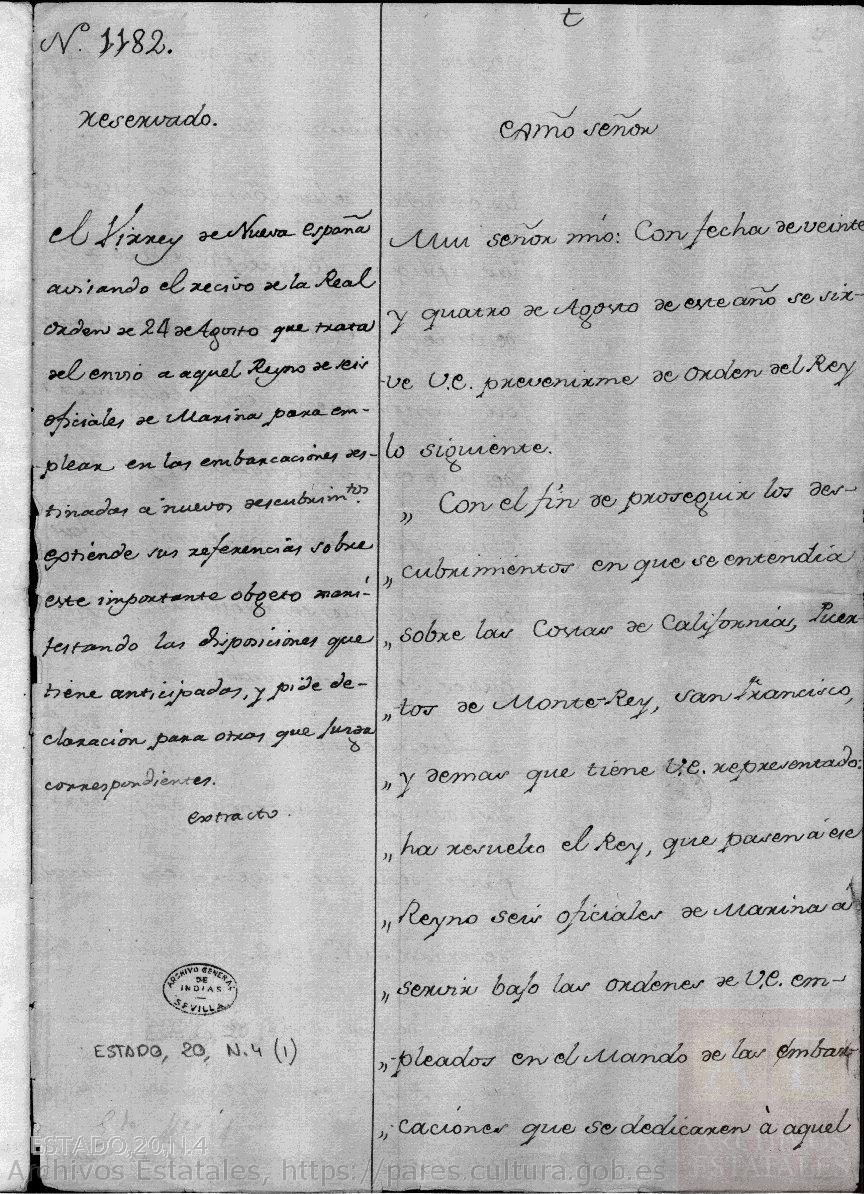 t
Nº 1182.
reservado.
el Virrey de Nueva España
avisando el recivo de la Real
orden de 24 de Agosto que trata
del envio a aquel Reyno de seis
oficiales de Marina para em-
plear en las embarcaciones des-
tinadas a nuevos descubrim.tos
extiende sus referencias sobre
este importante obgeto mani-
festando las disposiciones que
tiene anticipadas, y pide de-
claracion para otras que juzga
correspondientes.
extracto.
ARCHIVO GENERAL
DE
INDIAS
SEVILLA
ESTADO, 20, N.4 (1)
exmõ señor
Mui señor mio: Con fecha de veinte
y quatro de Agosto de este año se sir-
ve V.E. prevenirme de orden del Rey
lo siguiente.
„ Con el fin de proseguir los des-
„ cubrimientos en que se entendia
„ sobre las Costas de Californias, Puer-
„ tos de Monte-Rey, san Francisco,
„ y demas que tiene V.E. representado:
„ ha resuelto el Rey, que pasen á ese
„ Reyno seis oficiales de Marina á
„ servir bajo las ordenes de V.E. em-
„ pleados en el Mando de las embar
„ caciones que se dedicaren à aquel
ESTADO,20,N.4
Archivos Estatales, https://pares.cultura.gob.es
ESTATALES